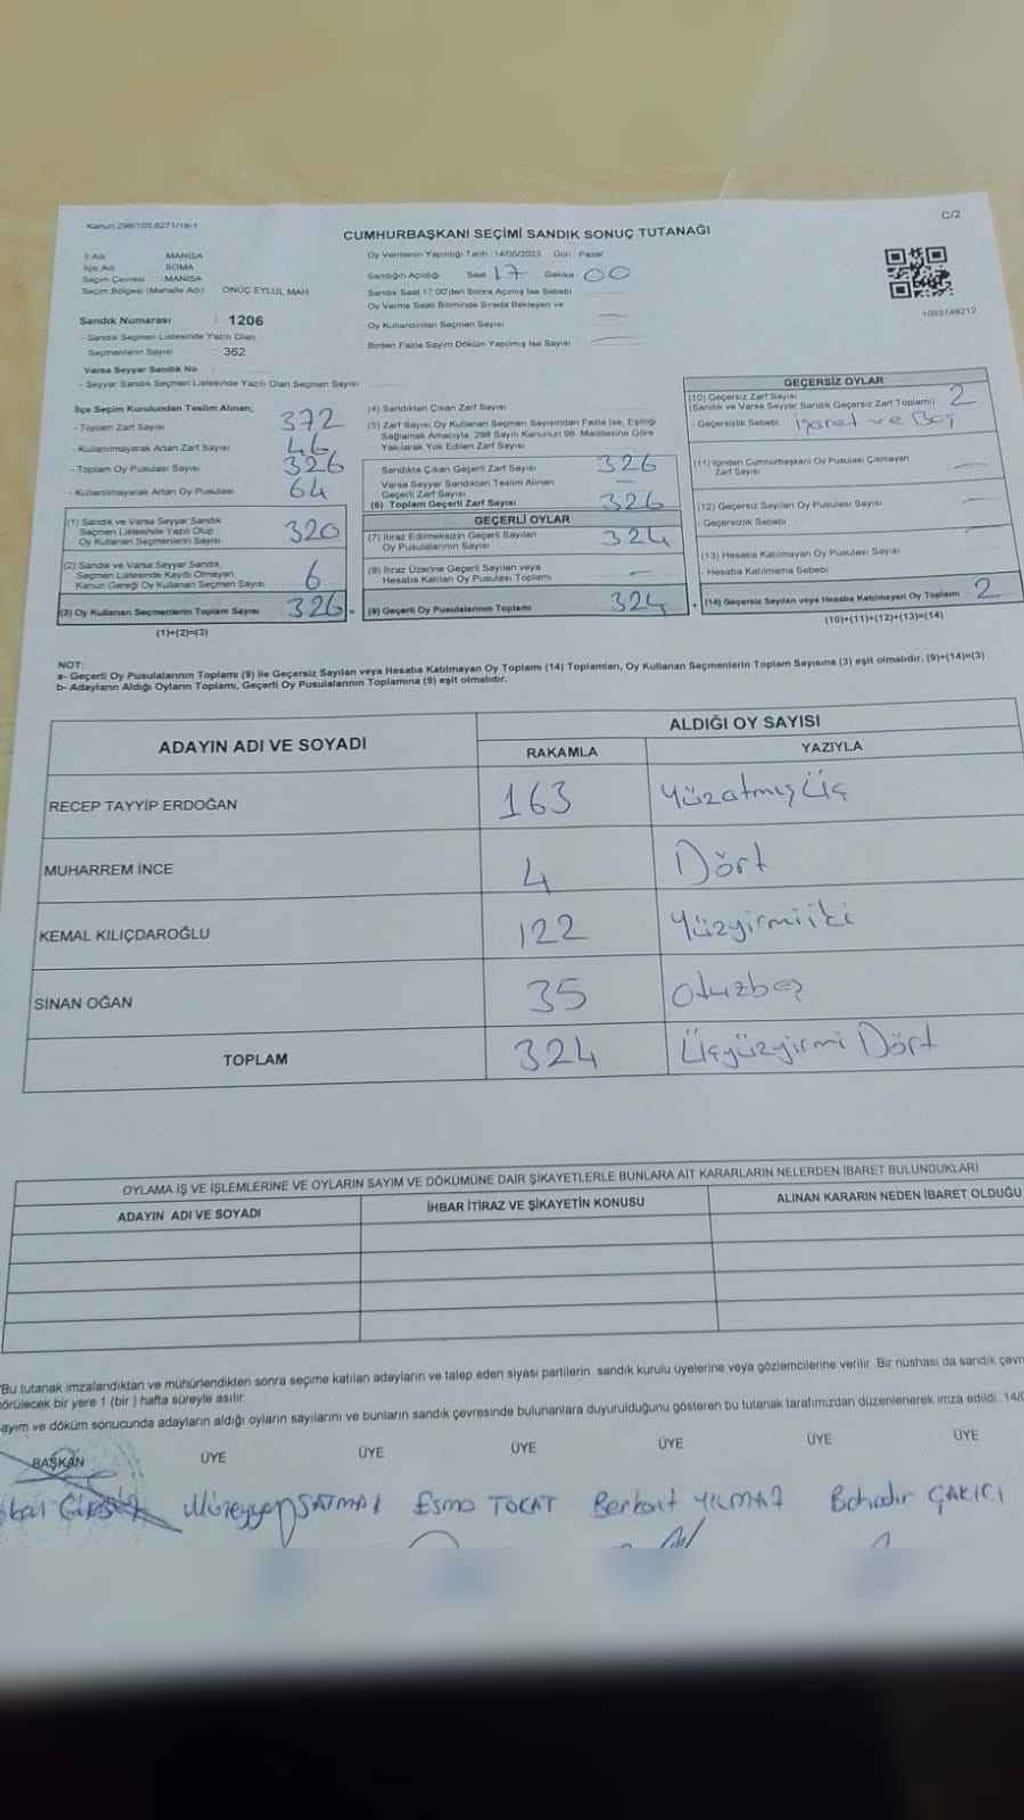 C/2
CUMHURBAŞKANI SEÇİMİ SANDIK SONUÇ TUTANAĞI
İl Adı MANİSA
İlçe Adı SOMA
Seçim Çevresi MANİSA
Seçim Bölgesi (Mahalle Adı) ONÜÇ EYLÜL MAH.
Sandık Numarası : 1206
- Sandık Seçmen Listesinde Yazılı Olan
Seçmenlerin Sayısı : 362
Varsa Seyyar Sandık No
- Seyyar Sandık Seçmen Listesinde Yazılı Olan Seçmen Sayısı
Oy Vermenin Yapıldığı Tarih : 14/05/2023 Gün : Pazar
Sandığın Açıldığı Saat 17 Dakika 00
Sandık Saat 17:00'den Sonra Açılmış İse Sebebi
Oy Verme Saati Bitiminde Sırada Bekleyen ve
Oy Kullandırılan Seçmen Sayısı
Birden Fazla Sayım Döküm Yapılmış İse Sayısı
1093749212
İlçe Seçim Kurulundan Teslim Alınan;
- Toplam Zarf Sayısı 372
- Kullanılmayarak Artan Zarf Sayısı 46
- Toplam Oy Pusulası Sayısı 326
- Kullanılmayarak Artan Oy Pusulası 64
(1) Sandık ve Varsa Seyyar Sandık
Seçmen Listesinde Yazılı Olup
Oy Kullanan Seçmenlerin Sayısı 320
(2) Sandık ve Varsa Seyyar Sandık
Seçmen Listesinde Kayıtlı Olmayan
Kanun Gereği Oy Kullanan Seçmen Sayısı 6
(3) Oy Kullanan Seçmenlerin Toplam Sayısı 326
(1)+(2)=(3)
(4) Sandıktan Çıkan Zarf Sayısı
(5) Zarf Sayısı Oy Kullanan Seçmen Sayısından Fazla İse, Eşitliği
Sağlamak Amacıyla, 298 Sayılı Kanunun 98. Maddesine Göre
Yakılarak Yok Edilen Zarf Sayısı
Sandıkta Çıkan Geçerli Zarf Sayısı 326
Varsa Seyyar Sandıktan Teslim Alınan
Geçerli Zarf Sayısı —
(6) Toplam Geçerli Zarf Sayısı 326
GEÇERLİ OYLAR
(7) İtiraz Edilmeksizin Geçerli Sayılan
Oy Pusulalarının Sayısı 324
(8) İtiraz Üzerine Geçerli Sayılan veya
Hesaba Katılan Oy Pusulası Toplamı —
(9) Geçerli Oy Pusulalarının Toplamı 324
GEÇERSİZ OYLAR
(10) Geçersiz Zarf Sayısı
(Sandık ve Varsa Seyyar Sandık Geçersiz Zarf Toplamı) 2
- Geçersizlik Sebebi İşaret ve Boş
(11) İçinden Cumhurbaşkanı Oy Pusulası Çıkmayan
Zarf Sayısı —
(12) Geçersiz Sayılan Oy Pusulası Sayısı —
- Geçersizlik Sebebi
(13) Hesaba Katılmayan Oy Pusulası Sayısı
- Hesaba Katılmama Sebebi
(14) Geçersiz Sayılan veya Hesaba Katılmayan Oy Toplamı 2
(10)+(11)+(12)+(13)=(14)
NOT:
a- Geçerli Oy Pusulalarının Toplamı (9) ile Geçersiz Sayılan veya Hesaba Katılmayan Oy Toplamı (14) Toplamları, Oy Kullanan Seçmenlerin Toplam Sayısına (3) eşit olmalıdır. (9)+(14)=(3)
b- Adayların Aldığı Oyların Toplamı, Geçerli Oy Pusulalarının Toplamına (9) eşit olmalıdır.
ADAYIN ADI VE SOYADI
ALDIĞI OY SAYISI
RAKAMLA YAZIYLA
RECEP TAYYİP ERDOĞAN 163 Yüzatmış Üç
MUHARREM İNCE 4 Dört
KEMAL KILIÇDAROĞLU 122 Yüzyirmiiki
SİNAN OĞAN 35 Otuzbeş
TOPLAM 324 Üçyüzyirmi Dört
OYLAMA İŞ VE İŞLEMLERİNE VE OYLARIN SAYIM VE DÖKÜMÜNE DAİR ŞİKAYETLERLE BUNLARA AİT KARARLARIN NELERDEN İBARET BULUNDUKLARI
ADAYIN ADI VE SOYADI İHBAR İTİRAZ VE ŞİKAYETİN KONUSU ALINAN KARARIN NEDEN İBARET OLDUĞU
Bu tutanak imzalandıktan ve mühürlendikten sonra seçime katılan adayların ve talep eden siyasi partilerin sandık kurulu üyelerine veya gözlemcilerine verilir. Bir nüshası da sandık çevr
örülecek bir yere 1 (bir) hafta süreyle asılır.
ayım ve döküm sonucunda adayların aldığı oyların sayılarını ve bunların sandık çevresinde bulunanlara duyurulduğunu gösteren bu tutanak tarafımızdan düzenlenerek imza edildi. 14/0
BAŞKAN ÜYE ÜYE ÜYE ÜYE ÜYE ÜYE
Esma TOKAT Berkant YILMAZ Bahadır ÇAKICI